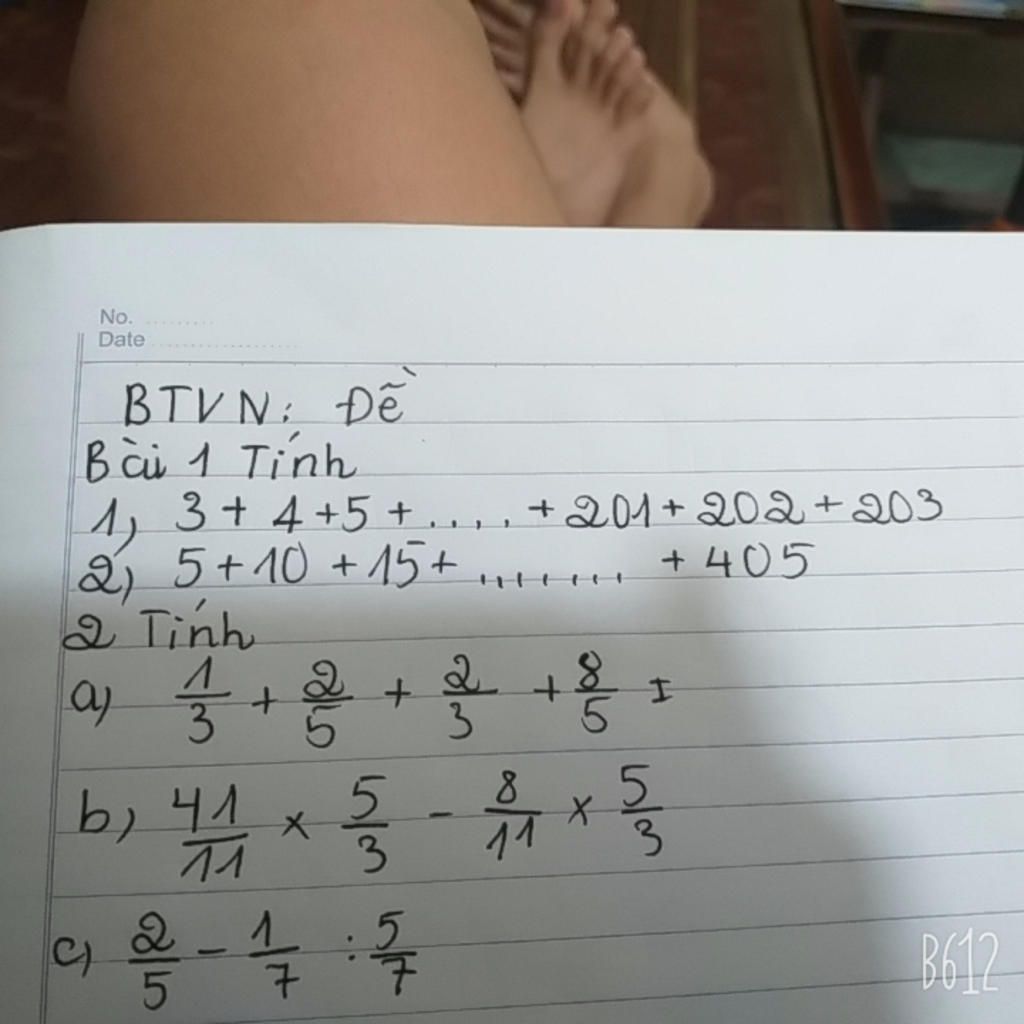 No. ..........
Date ......................
BTVN: Đề
Bài 1 Tính
1, 3 + 4 + 5 + .... + 201 + 202 + 203
2, 5 + 10 + 15 + ........ + 405
2 Tính
a) 1/3 + 2/5 + 2/3 + 8/5 =
b, 41/11 × 5/3 - 8/11 × 5/3
c, 2/5 - 1/7 : 5/7
B612